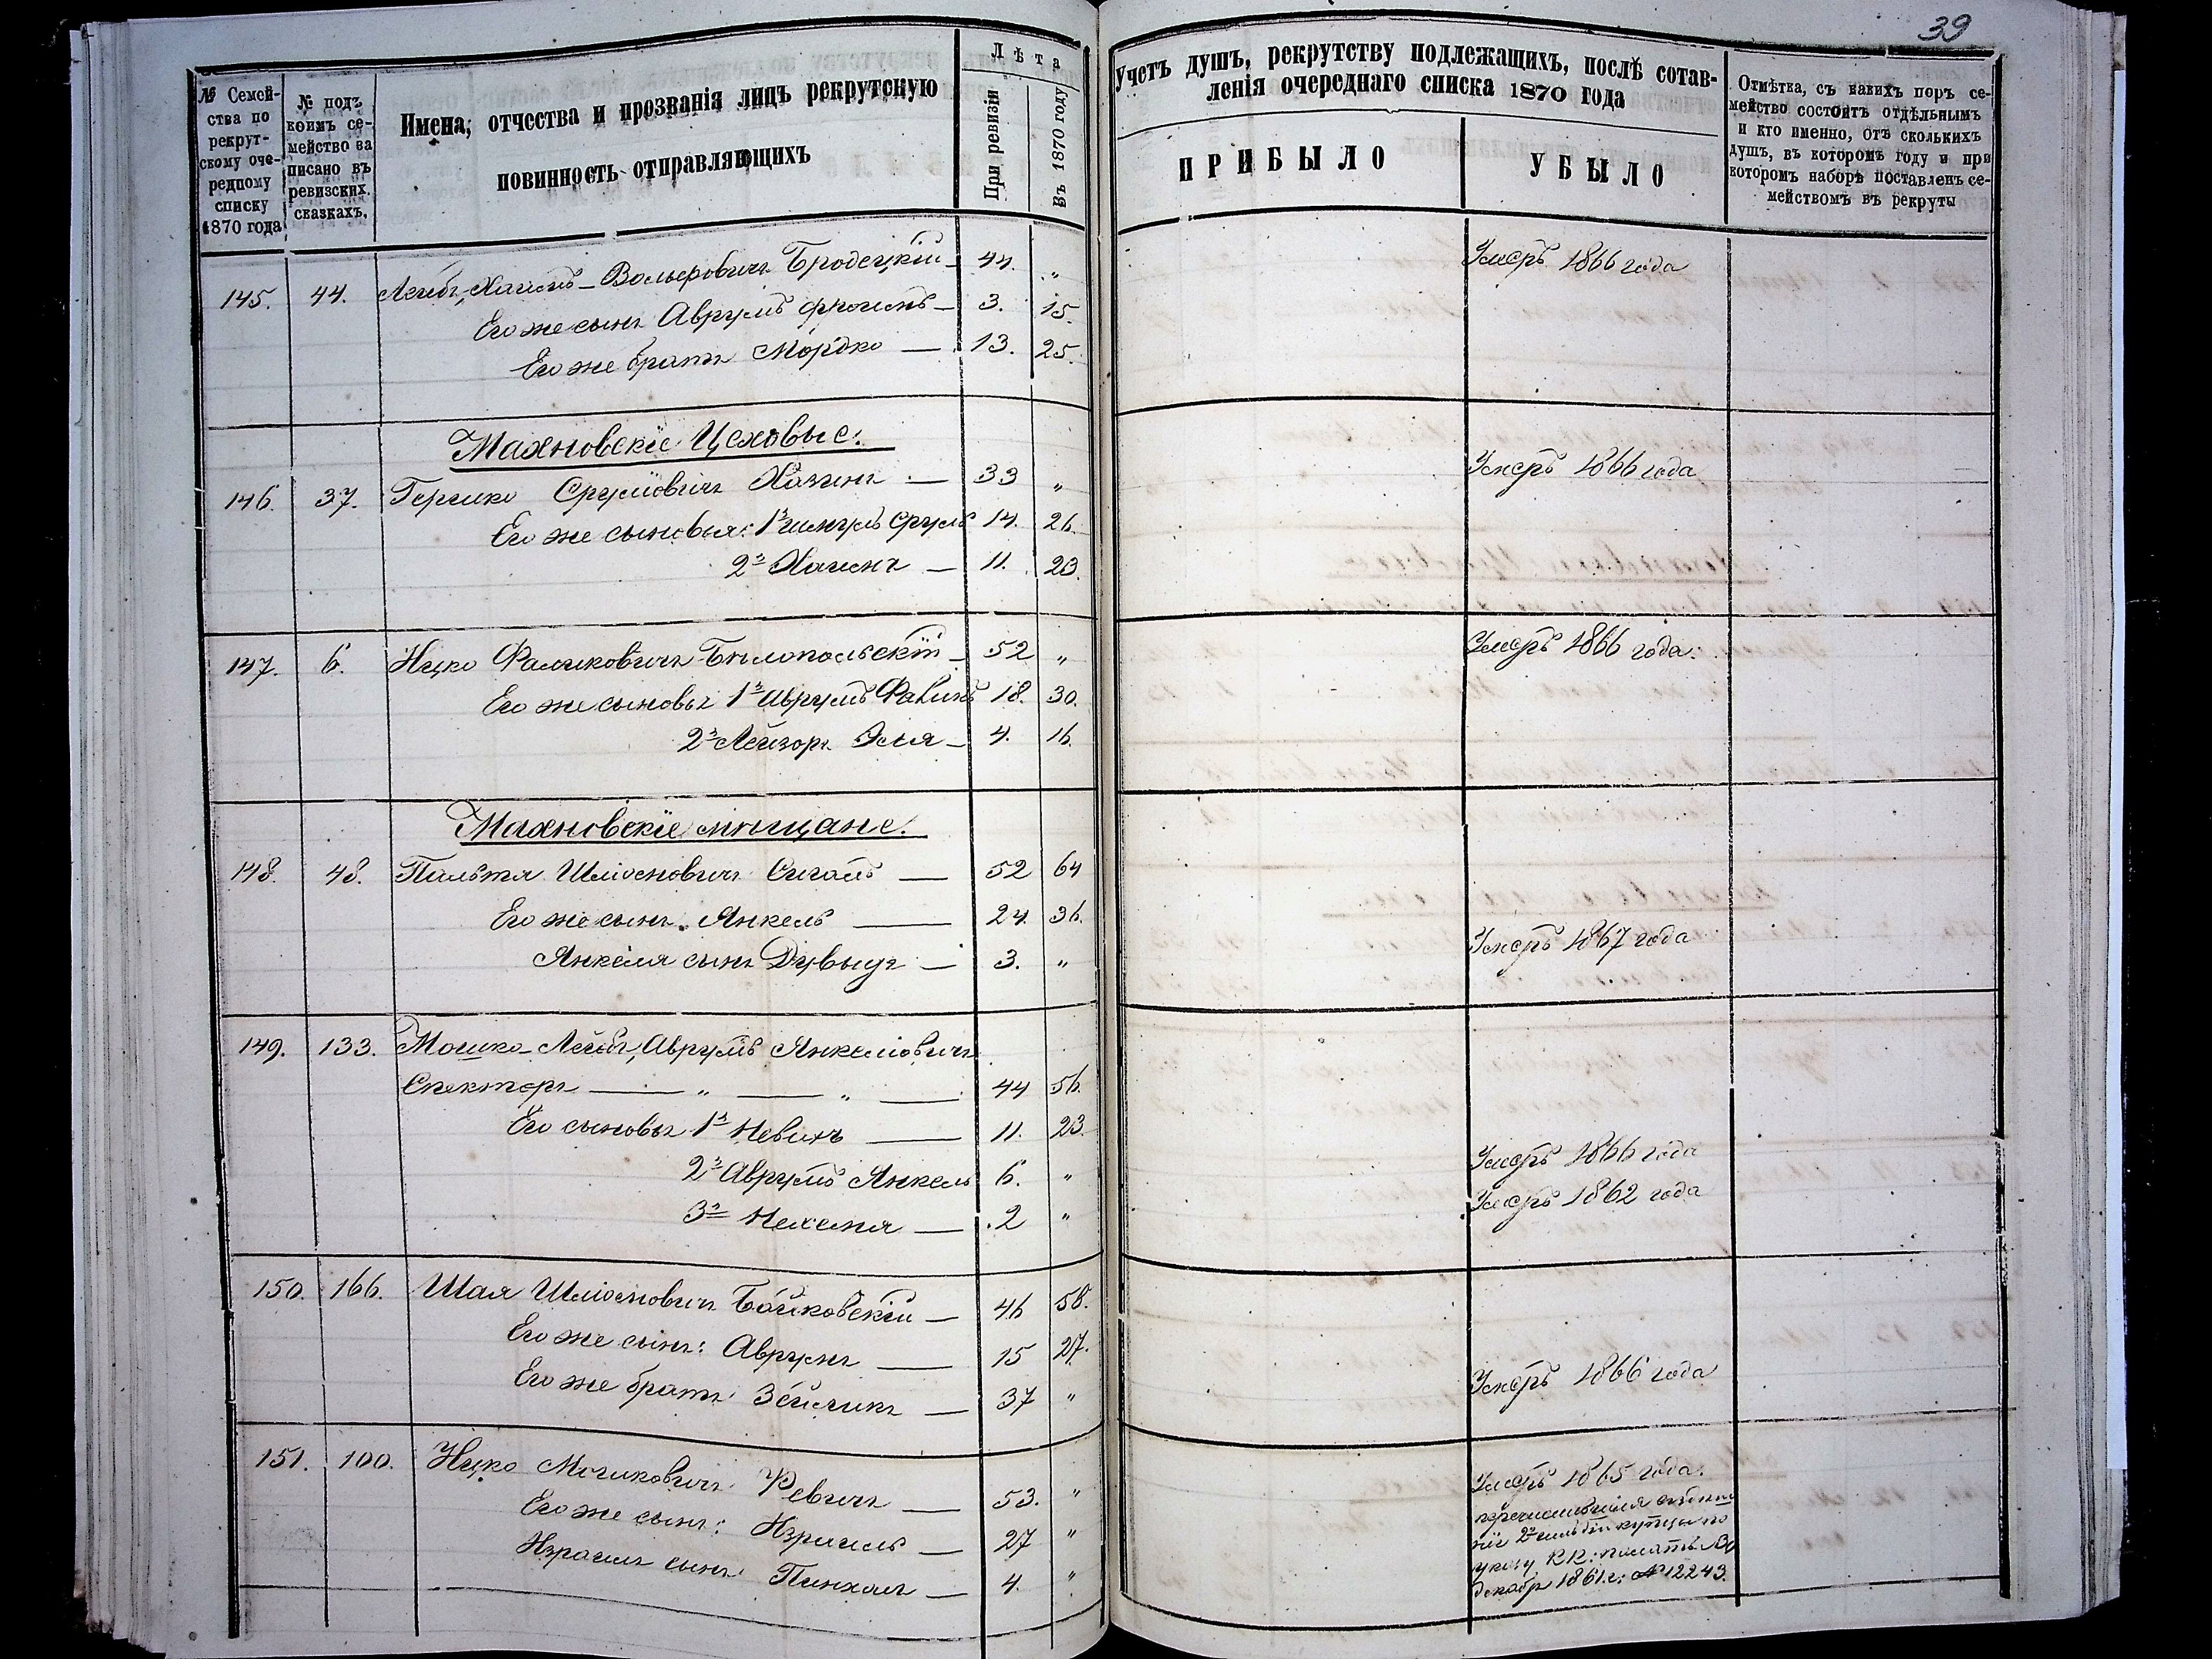 39
№ Семей-
ства по
рекрут-
скому оче-
редному
списку
1870 года
№ подъ
коимъ се-
мейство за
писано въ
ревизскихъ
сказкахъ.
Имена, отчества и прозванія лицъ рекрутскую
повинность отправляющихъ
Лѣта
При ревизіи
Въ 1870 году
Учетъ душъ, рекрутству подлежащихъ, послѣ сотав-
ленія очереднаго списка 1870 года
ПРИБЫЛО
УБЫЛО
Отмѣтка, съ какихъ поръ се-
мейство состоитъ отдѣльнымъ
и кто именно, отъ сколькихъ
душъ, въ которомъ году и при
которомъ наборѣ поставленъ се-
мействомъ въ рекруты
145. 44. Лейбъ-Хаимъ-Вольфовичъ Бродецкій — 44. " Умеръ 1866 года
Его же сынъ Аврумъ Фроимъ — 3. 15.
Его же братъ Мордко — 13. 25.
Махновскіе Цеховые.
146. 37. Гершко Срулiовичъ Хазинъ — 33 " Умеръ 1866 года
Его же сыновья: 1й Сруль 14. 26.
2й Хаимъ — 11. 23.
147. 6. Ицко Фаликовичъ Бѣлопольскій — 52 " Умеръ 1866 года.
Его же сыновья 1й Аврумъ Фаликъ 18. 30.
2й Лейзоръ Эля — 4. 16.
Махновскіе мѣщане.
148. 48. Пальтя Шліомовичъ Сигалъ — 52 64
Его же сынъ Янкель — 24. 36.
Янкеля сынъ Дувыдъ — 3. " Умеръ 1867 года
149. 133. Мошко-Лейбъ, Аврумъ Янкеліовичъ
Спекторъ — " — " — 44 56.
Его сыновья 1й Невихъ — 11. 23.
2й Аврумъ Янкель 6. " Умеръ 1866 года
3й Нехемя — 2 " Умеръ 1862 года
150. 166. Шая Шліомовичъ Байковскій — 46 58.
Его же сынъ: Аврумъ — 15 27.
Его же братъ Зейликъ — 37 " Умеръ 1866 года
151. 100. Ицко Мошковичъ Ревичъ — 53. " Умеръ 1865 года.
Его же сынъ: Израиль — 27 "
Израиля сынъ Пинхасъ — 4. "
перечислился
2й гильдіи купцы по
указу К.К. палаты 30
декабр 1861 г: № 12243.